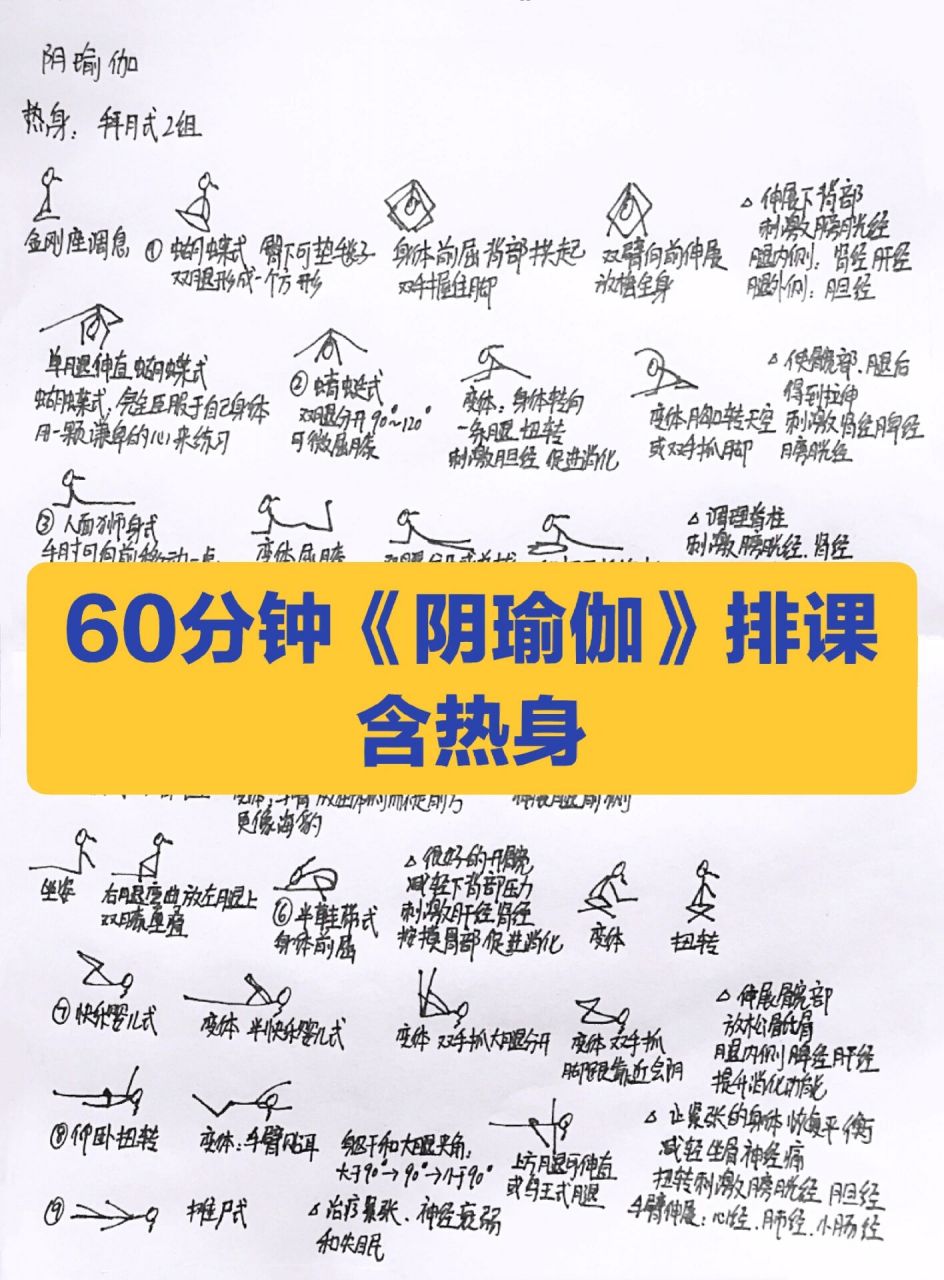 阴瑜伽
热身：拜月式2组
金刚座调息
① 蝴蝶式 臀下可垫毯子
双腿形成一个方形
身体前屈背部拱起
双手握住脚
双臂向前伸展
放松全身
△ 伸展下背部
刺激膀胱经
腿内侧：肾经肝经
腿外侧：胆经
单腿伸直蝴蝶式
蝴蝶式，完全臣服于自己身体
用一颗谦卑的心来练习
② 蜻蜓式
双腿分开90°~120°
可微屈膝
变体：身体转向
一条腿 扭转
刺激胆经 促进消化
变体胸口转天空
或双手抓脚
△ 使髋部、腿后
得到拉伸
刺激肾经脾经
膀胱经
③ 人面狮身式
手肘可向前移动一点
变体屈膝
△ 调理脊柱
刺激膀胱经、肾经
60分钟《阴瑜伽》排课
含热身
更像海豹
坐姿
右腿弯曲放左腿上
双膝重叠
⑥ 半鞋带式
身体前屈
△ 很好的开髋
减轻下背部压力
刺激肝经肾经
按摩胃部 促进消化
变体
扭转
⑦ 快乐婴儿式
变体 半快乐婴儿式
变体 双手抓大腿分开
变体 双手抓
脚跟靠近会阴
△ 伸展髋部
放松骶骨
腿内侧脾经肝经
提升消化功能
⑧ 仰卧扭转
变体：手臂贴耳
躯干和大腿夹角，
大于90°→90°→小于90°
上方腿可伸直
或鸟王式腿
△ 让紧张的身体恢复平衡
减轻坐骨神经痛
扭转刺激膀胱经 胆经
手臂伸展：心经、肺经、小肠经
⑨ 摊尸式
△ 治疗紧张、神经衰弱
和失眠